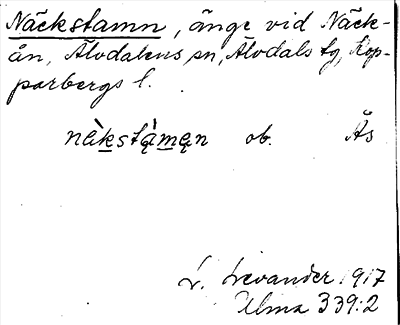 Näckstamn, änge vid Näck-
ån, Älvdalens sn, Älvdals tg, Kop-
parbergs l.
nàkstàmạn ob. Ås
L. Levander 1917
Ulma 339:2